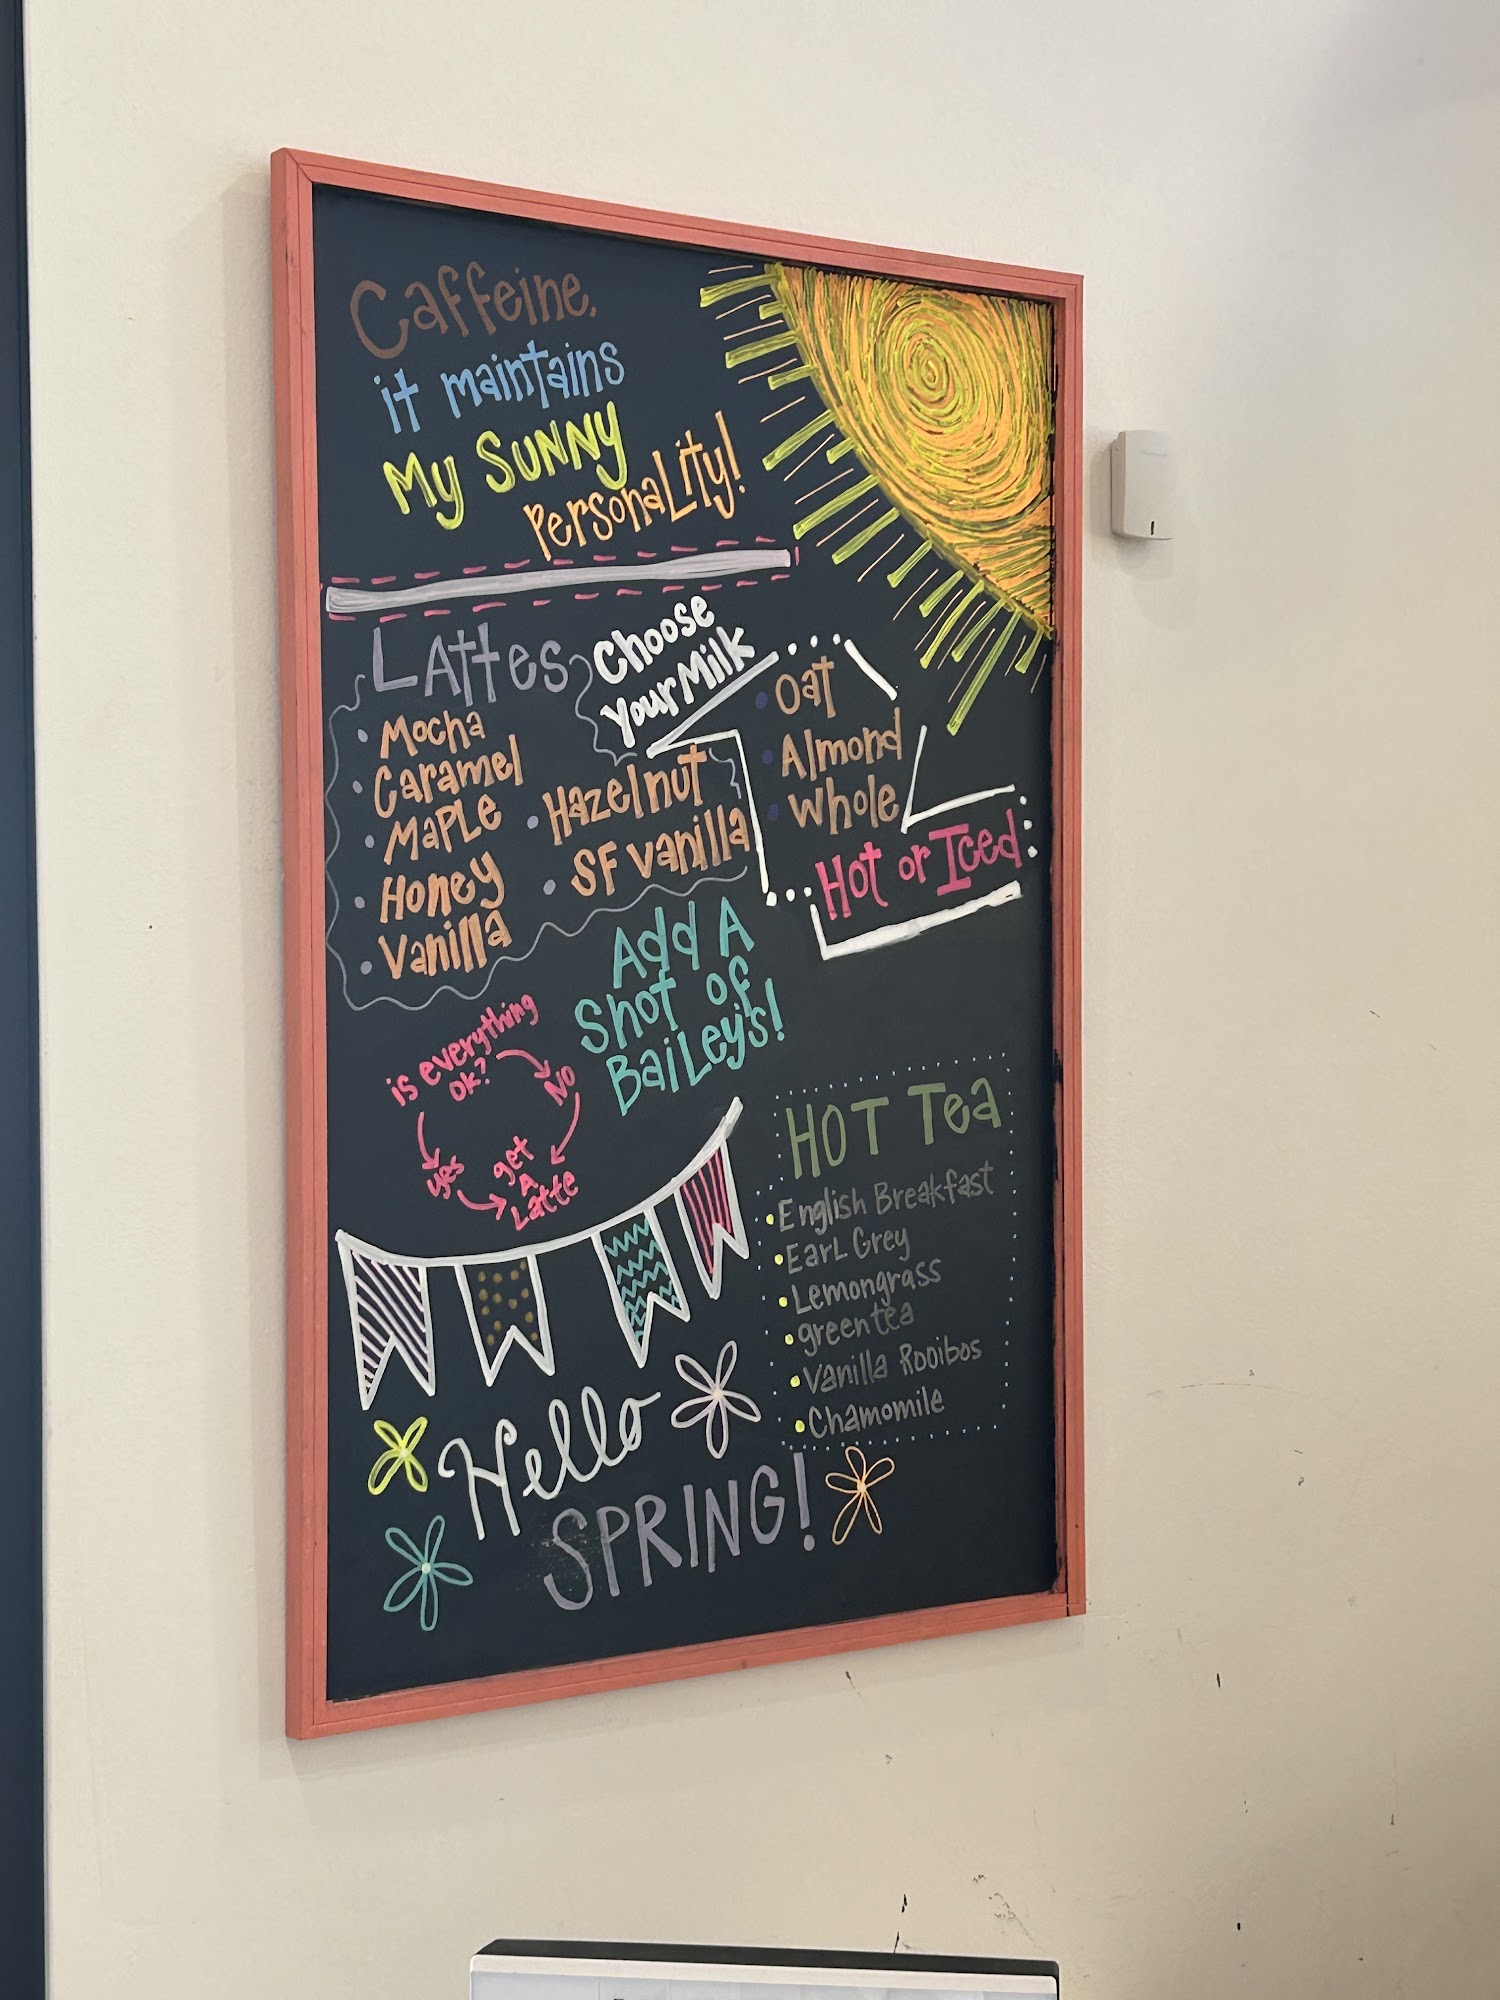 Caffeine,
it maintains
My Sunny
Personality!
Lattes
• Mocha
• Caramel
• Maple
• Honey
• Vanilla
• Hazelnut
• SF Vanilla
Choose
Your Milk
• Oat
• Almond
• Whole
Hot or Iced
Add A
Shot of
Bailey's!
is everything
ok?
No
yes
get
A
Latte
HOT Tea
• English Breakfast
• Earl Grey
• Lemongrass
• green tea
• Vanilla Rooibos
• Chamomile
Hello
SPRING!